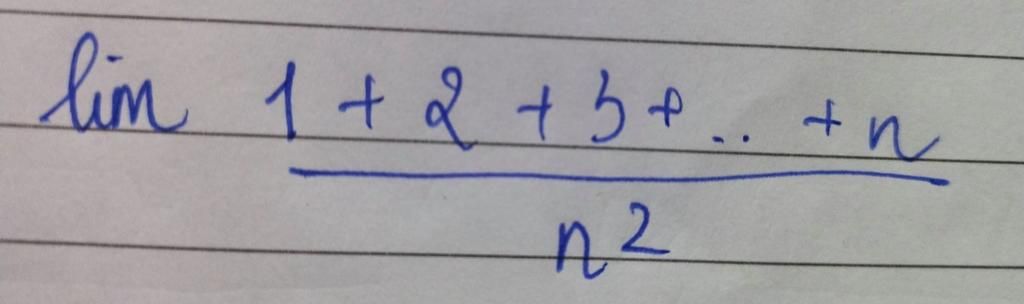 lim 1 + 2 + 3 + .. + n
n²